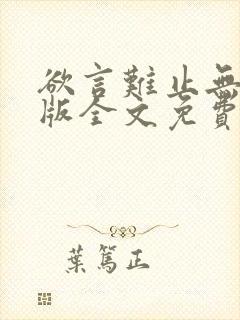 欲言難止無
版全文免費
葉篤正